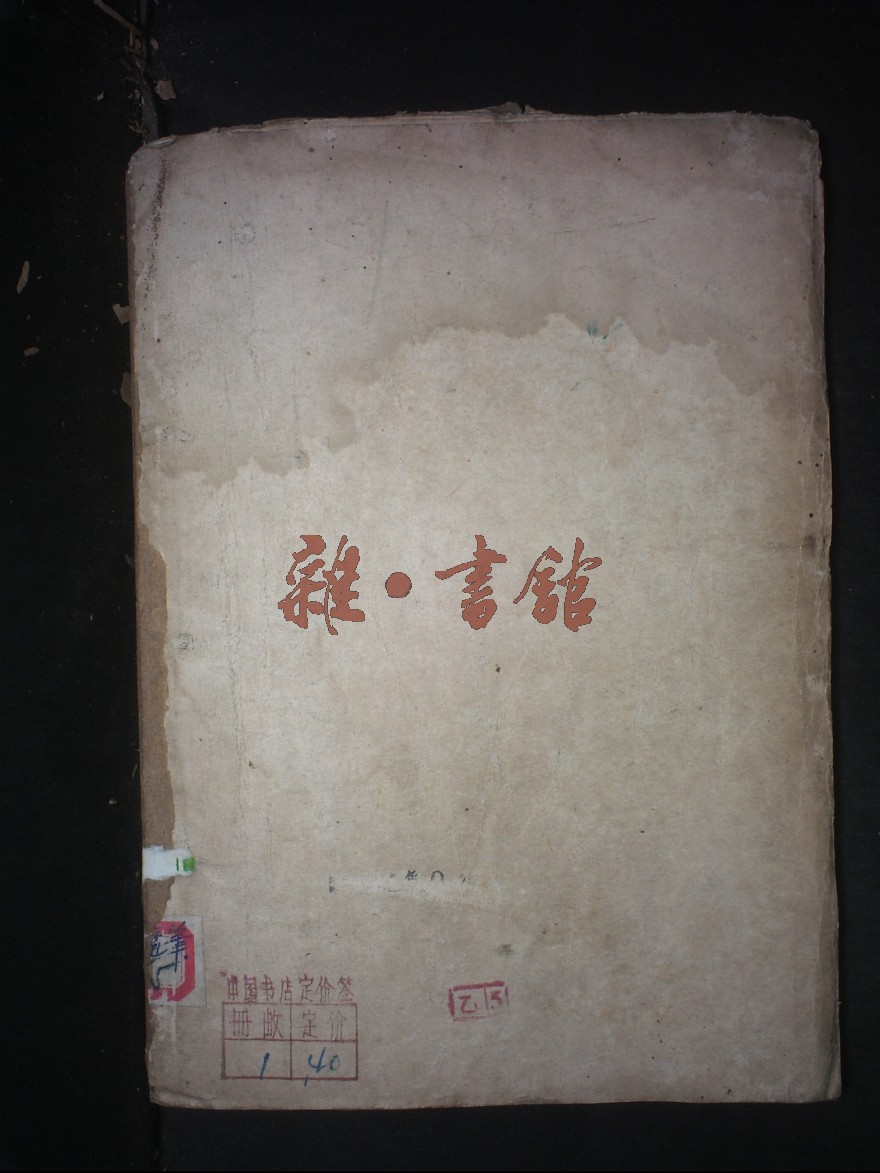 雜·書館
中国书店定价签
册数 定价
1 .40
乙 5